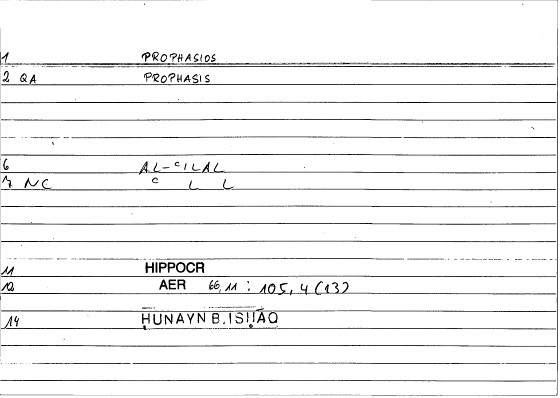 1 PROPHASIOS
2 QA PROPHASIS
6 AL-ᶜILAL
7 NC ᶜ L L
11 HIPPOCR
12 AER 66,11 : 105,4 (13)
14 ḤUNAYN B. ISḤĀQ